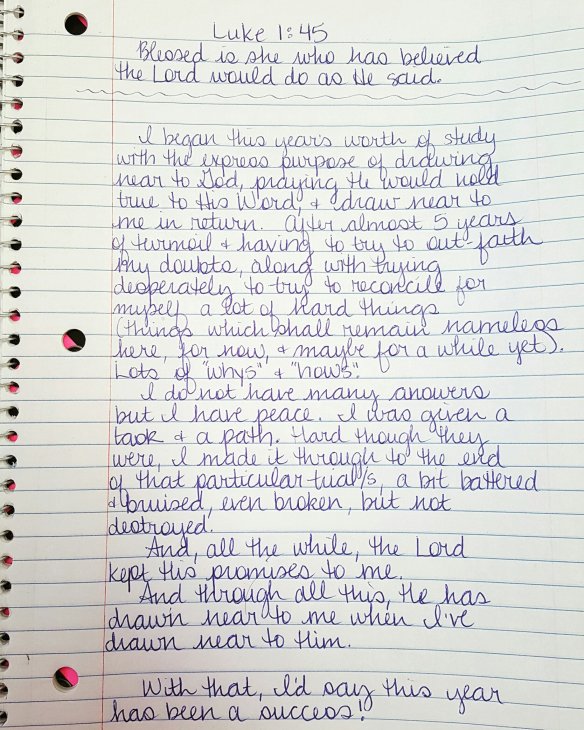 Luke 1:45
Blessed is she who has believed
the Lord would do as He said.
I began this year's worth of study
with the express purpose of drawing
near to God, praying He would hold
true to His Word, & draw near to
me in return. After almost 5 years
of turmoil & having to try to out-faith
my doubts, along with trying
desperately to try to reconcile for
myself a lot of hard things
(things which shall remain nameless
here, for now, & maybe for a while yet).
Lots of "whys" & "hows".
I do not have many answers
but I have peace. I was given a
task & a path. Hard though they
were, I made it through to the end
of that particular trial/s, a bit battered
& bruised, even broken, but not
destroyed.
And, all the while, the Lord
kept His promises to me.
And through all this, He has
drawn near to me when I've
drawn near to Him.
With that, I'd say this year
has been a success!